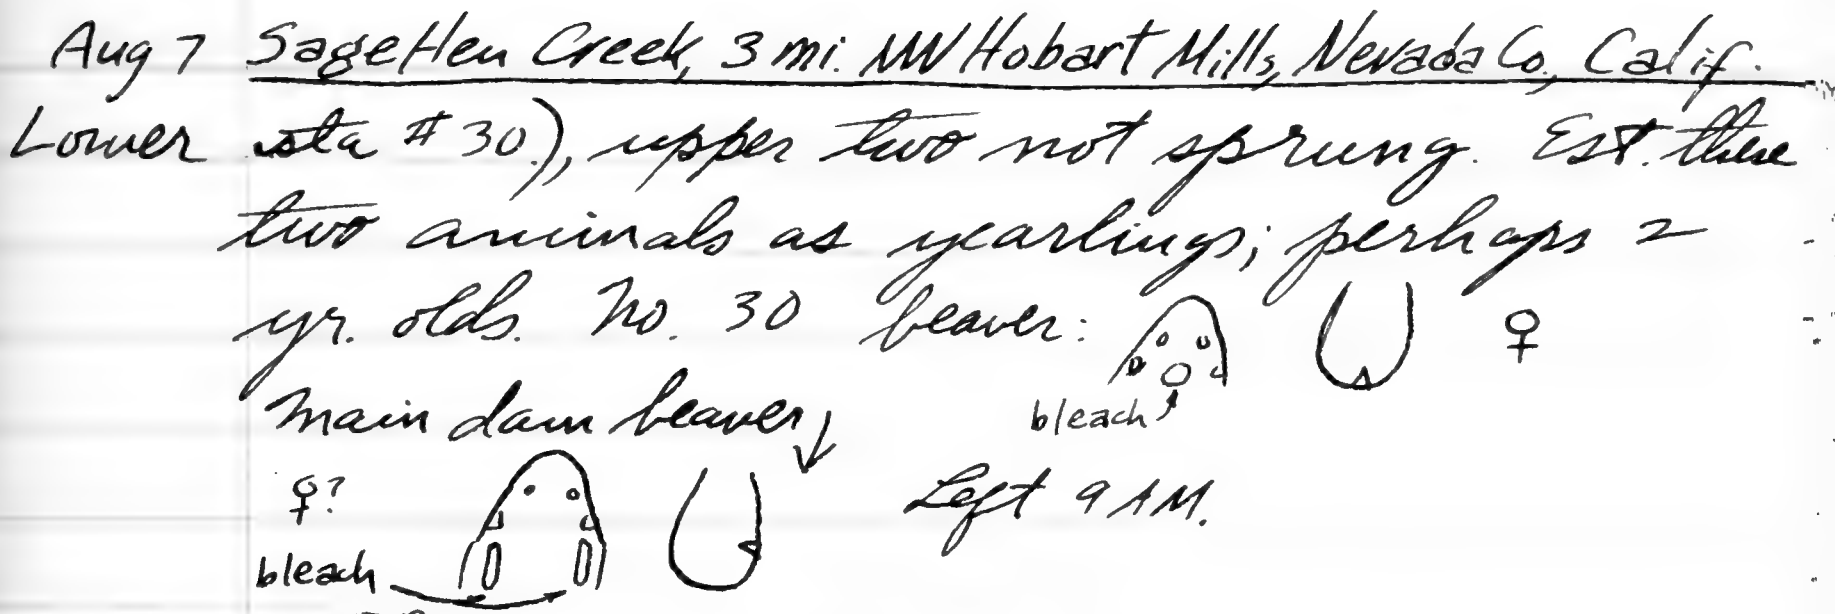 Aug 7 Sagehen Creek, 3 mi. NW Hobart Mills, Nevada Co., Calif.
Lower sta # 30.), upper two not sprung. Est. these
two animals as yearlings; perhaps 2
yr. olds. No. 30 beaver: ♀
bleach
Main dam beaver
♀? Left 9 AM.
bleach